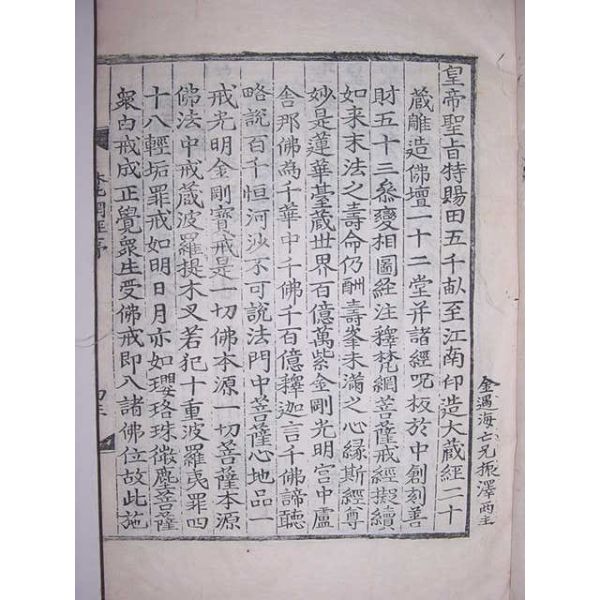 皇帝聖旨特賜田五千畝至江南印造大藏經二十
藏雕造佛壇一十二堂并諸經呪板於中創刻善
財五十三叅變相圖経注釋梵網菩薩戒經擬續
如来末法之壽命仍酬壽峯未滿之心緣斯經尊
妙是蓮華臺藏世界百億萬紫金剛光明宫中盧
舍那佛為千華中千佛千百億釋迦言千佛諦聽
略說百千恒河沙不可說法門中菩薩心地品一
戒光明金剛寳戒是一切佛本源一切菩薩本源
佛法中戒藏波羅提木叉若犯十重波羅夷罪四
十八輕垢罪戒如明日月亦如瓔珞珠微塵菩薩
衆由戒成正覺衆生受佛戒即入諸佛位故此施
梵網经序
金遇海亡兄振澤両主